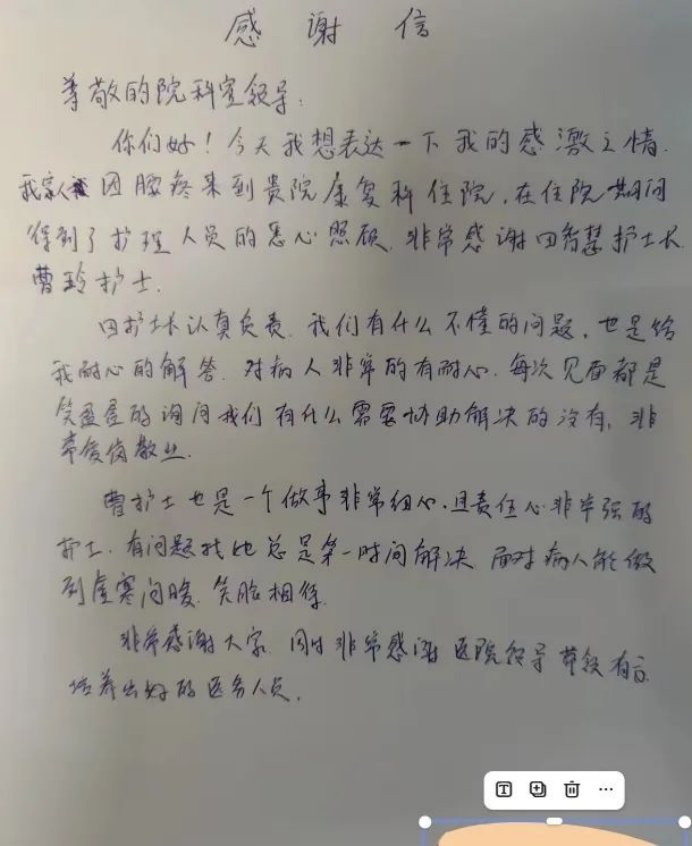 感谢信
尊敬的院科室领导:
你们好!今天我想表达一下我的感激之情.
我家人 因腰疼来到贵院康复科住院,在住院期间
得到了护理人员的悉心照顾.非常感谢田智慧护士长
曹玲护士.
田护士长认真负责.我们有什么不懂的问题,也是给
我耐心的解答.对病人非常的有耐心.每次见面都是
笑盈盈的询问我们有什么需要协助解决的没有,非
常爱岗敬业.
曹护士也是一个做事非常细心.且责任心非常强的
护士.有问题找她总是第一时间解决.面对病人能做
到 寒问暖.笑脸相 .
非常感谢大家.同时非常感谢医院领导带领有方.
培养出好的医务人员.